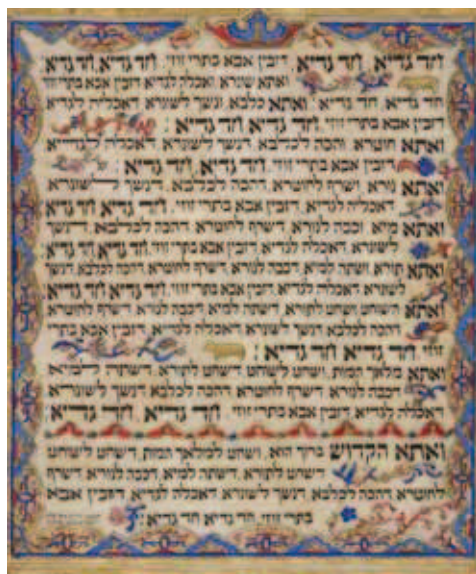 חד גדיא, חד גדיא דזבין אבא בתרי זוזי, חד גדיא, חד גדיא.
ואתא שונרא, ואכלה לגדיא דזבין אבא בתרי זוזי
חד גדיא, חד גדיא: ואתא כלבא, ונשך לשונרא, דאכלה לגדיא
דזבין אבא בתרי זוזי, חד גדיא חד גדיא:
ואתא חוטרא, והכה לכלבא, דנשך לשונרא, דאכלה לגדיא
דזבין אבא בתרי זוזי, חד גדיא חד גדיא:
ואתא נורא, ושרף לחוטרא, דהכה לכלבא, דנשך לשונרא
דאכלה לגדיא, דזבין אבא בתרי זוזי, חד גדיא חד גדיא
ואתא מיא, וכבה לנורא, דשרף לחוטרא, דהכה לכלבא, דנשך
לשונרא, דאכלה לגדיא, דזבין אבא בתרי זוזי, חד גדיא, חד גדיא
ואתא תורא, ושתה למיא, דכבה לנורא, דשרף לחוטרא, דהכה לכלבא, דנשך
לשונרא, דאכלה לגדיא, דזבין אבא בתרי זוזי, חד גדיא, חד גדיא
ואתא השוחט, ושחט לתורא, דשתה למיא, דכבה לנורא, דשרף לחוטרא
דהכה לכלבא, דנשך לשונרא, דאכלה לגדיא, דזבין אבא בתרי
זוזי, חד גדיא חד גדיא:
ואתא מלאך המות, ושחט לשוחט, דשחט לתורא, דשתה למיא
דכבה לנורא, דשרף לחוטרא, דהכה לכלבא, דנשך לשונרא
דאכלה לגדיא, דזבין אבא בתרי זוזי, חד גדיא, חד גדיא:
ואתא הקדוש ברוך הוא, ושחט למלאך המות, דשחט לשוחט
דשחט לתורא, דשתה למיא, דכבה לנורא, דשרף
לחוטרא, דהכה לכלבא, דנשך לשונרא, דאכלה לגדיא, דזבין אבא
בתרי זוזי, חד גדיא חד גדיא: